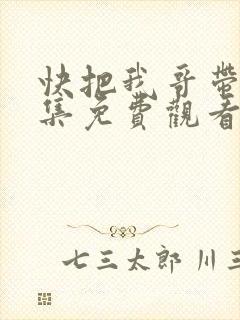 快把我哥帶
集免費觀看
七三太郎 川三